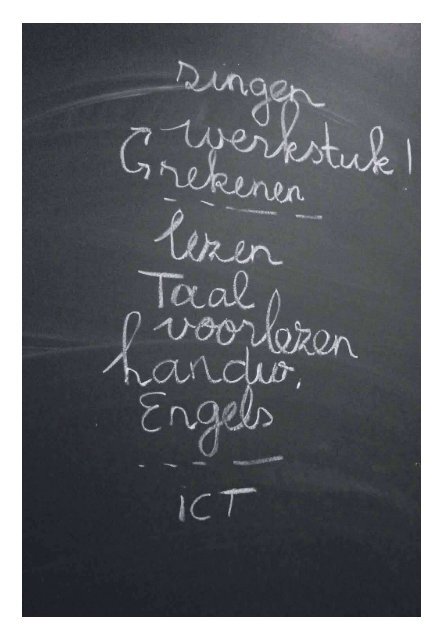 zingen
werkstuk!
rekenen
lezen
Taal
voorlezen
handw.
Engels
ICT